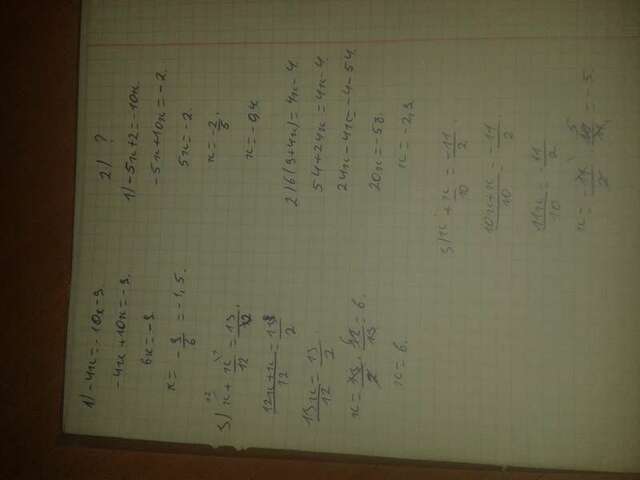 1) -4x = -10x-9
-4x+10x = -9.
6x = -9
x = -9/6 = -1,5.
3) x + x/12 = 13/2
12x+x/12 = 13/2
13x/12 = 13/2
x = 13/2 · 12/13 = 6.
x = 6.
2) ?
1) -5x+2 = -10x.
-5x+10x = -2.
5x = -2.
x = -2/5.
x = -0,4.
2) 6(9+4x) = 4x-4
54+24x = 4x-4
24x-4x = -4-54.
20x = -58.
x = -2,9.
3) x + x/10 = -11/2
10x+x/10 = -11/2.
11x/10 = -11/2
x = -11/2 · 10/11 = -5.